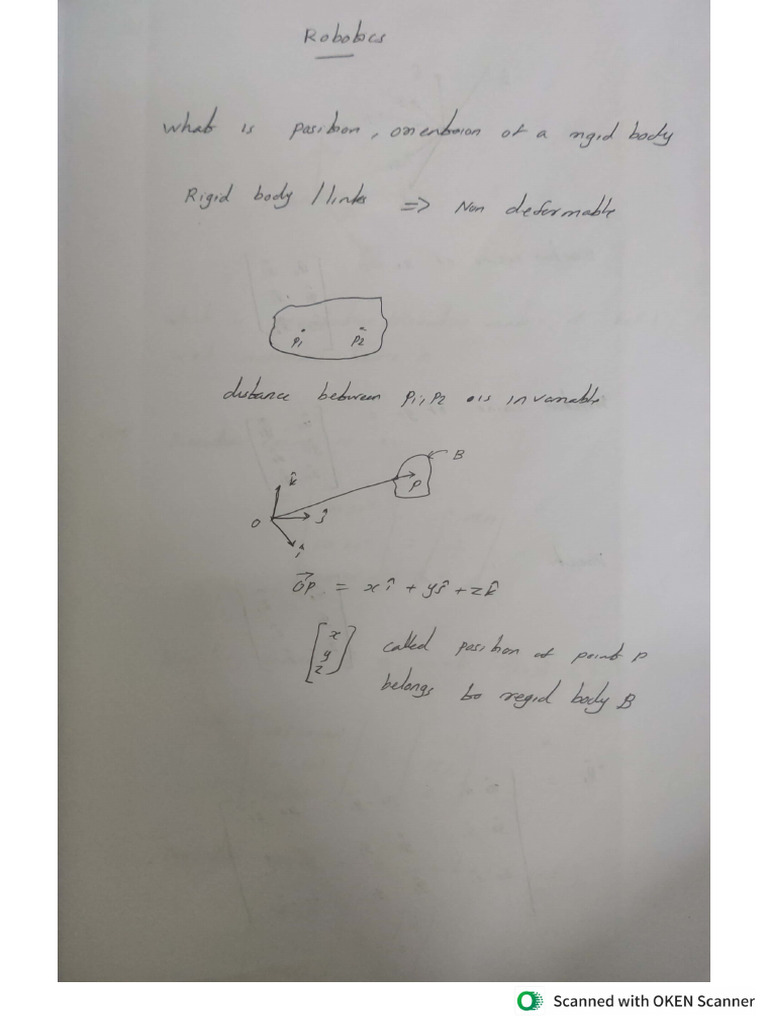 Robotics
What is position, orientation of a rigid body
Rigid body / links => Non deformable
P1 P2
distance between P1, P2 is invariable
B
k̂
P
O
ĵ
î
OP⃗ = xî + yĵ + zk̂
[x y z] called position of point P
belongs to regid body B
Scanned with OKEN Scanner